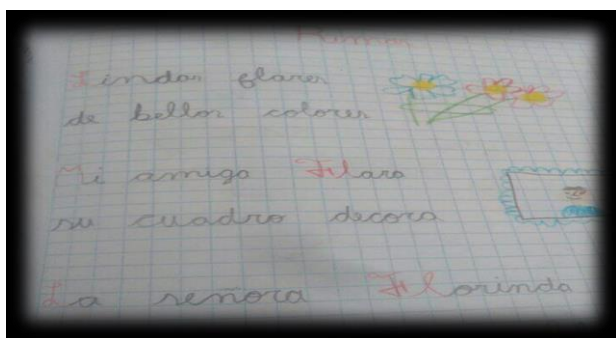 Rimas
Lindas flores
de bellos colores
Mi amiga Flora
su cuadro decora
La señora Florinda